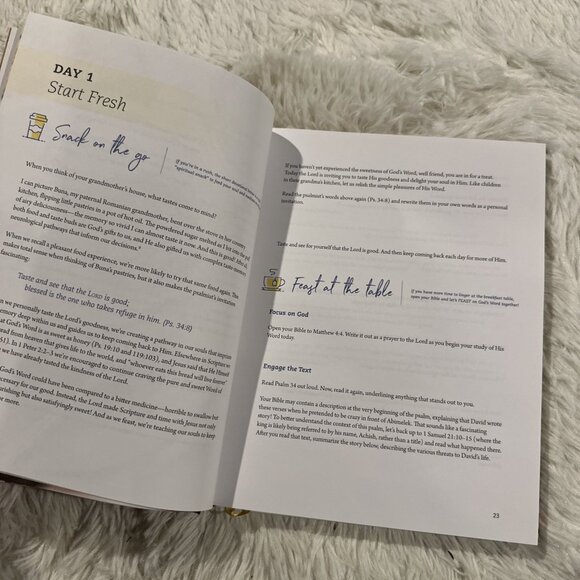 DAY 1
Start Fresh
Snack on the go
If you're in a rush, the short devotional below is a
"spiritual snack" to feed your soul and nourish
When you think of your grandmother's house, what tastes come to mind?
I can picture Buna, my paternal Romanian grandmother, bent over the stove in her
kitchen, flipping little pastries in a pot of hot oil. The powdered sugar melted as I
of airy deliciousness—the memory so vivid I can almost taste it now. And this is good!
both food and taste buds are God's gifts to us, and He also gifted us with complex
neurological pathways that inform our decisions.
When we recall a pleasant food experience, we're more likely to try that same food again. This
makes total sense when thinking of Buna's pastries, but it also makes the psalmist's invitation
fascinating:
Taste and see that the LORD is good;
blessed is the one who takes refuge in him. (Ps. 34:8)
we personally taste the Lord's goodness, we're creating a pathway in our souls that
memory deep within us and guides us to keep coming back to Him. Elsewhere in Scripture
at God's Word is sweet as honey (Ps. 19:10 and 119:103), and Jesus said that He Himself
read from heaven that gives life to the world, and "whoever eats this bread will live forever"
51). In 1 Peter 2:2–3 we're encouraged to continue craving the pure and sweet Word of
we have already tasted the kindness of the Lord.
God's Word could have been compared to a bitter medicine—horrible to swallow but
necessary for our good. Instead, the Lord made Scripture and time with Jesus not only
nourishing but also satisfyingly sweet! And as we feast, we're teaching our souls to keep
more.
If you haven't yet experienced the sweetness of God's Word, well friend, you are in for a treat.
Today the Lord is inviting you to taste His goodness and delight your soul in Him. Like children
in their grandma's kitchen, let us relish the simple pleasures of His Word.
Read the psalmist's words above again (Ps. 34:8) and rewrite them in your own words as a personal
invitation.
Taste and see for yourself that the Lord is good. And then keep coming back each day for more of Him.
Feast at the table
If you have more time to linger at the breakfast table,
open your Bible and let's FEAST on God's Word together!
Focus on God
Open your Bible to Matthew 4:4. Write it out as a prayer to the Lord as you begin your study of His
Word today.
Engage the Text
Read Psalm 34 out loud. Now, read it again, underlining anything that stands out to you.
Your Bible may contain a description at the very beginning of the psalm, explaining that David wrote
these verses when he pretended to be crazy in front of Abimelek. That sounds like a fascinating
story! To better understand the context of this psalm, let's back up to 1 Samuel 21:10–15 (where the
king is likely being referred to by his name, Achish, rather than a title) and read what happened there.
After you read that text, summarize the story below, describing the various threats to David's life.
23